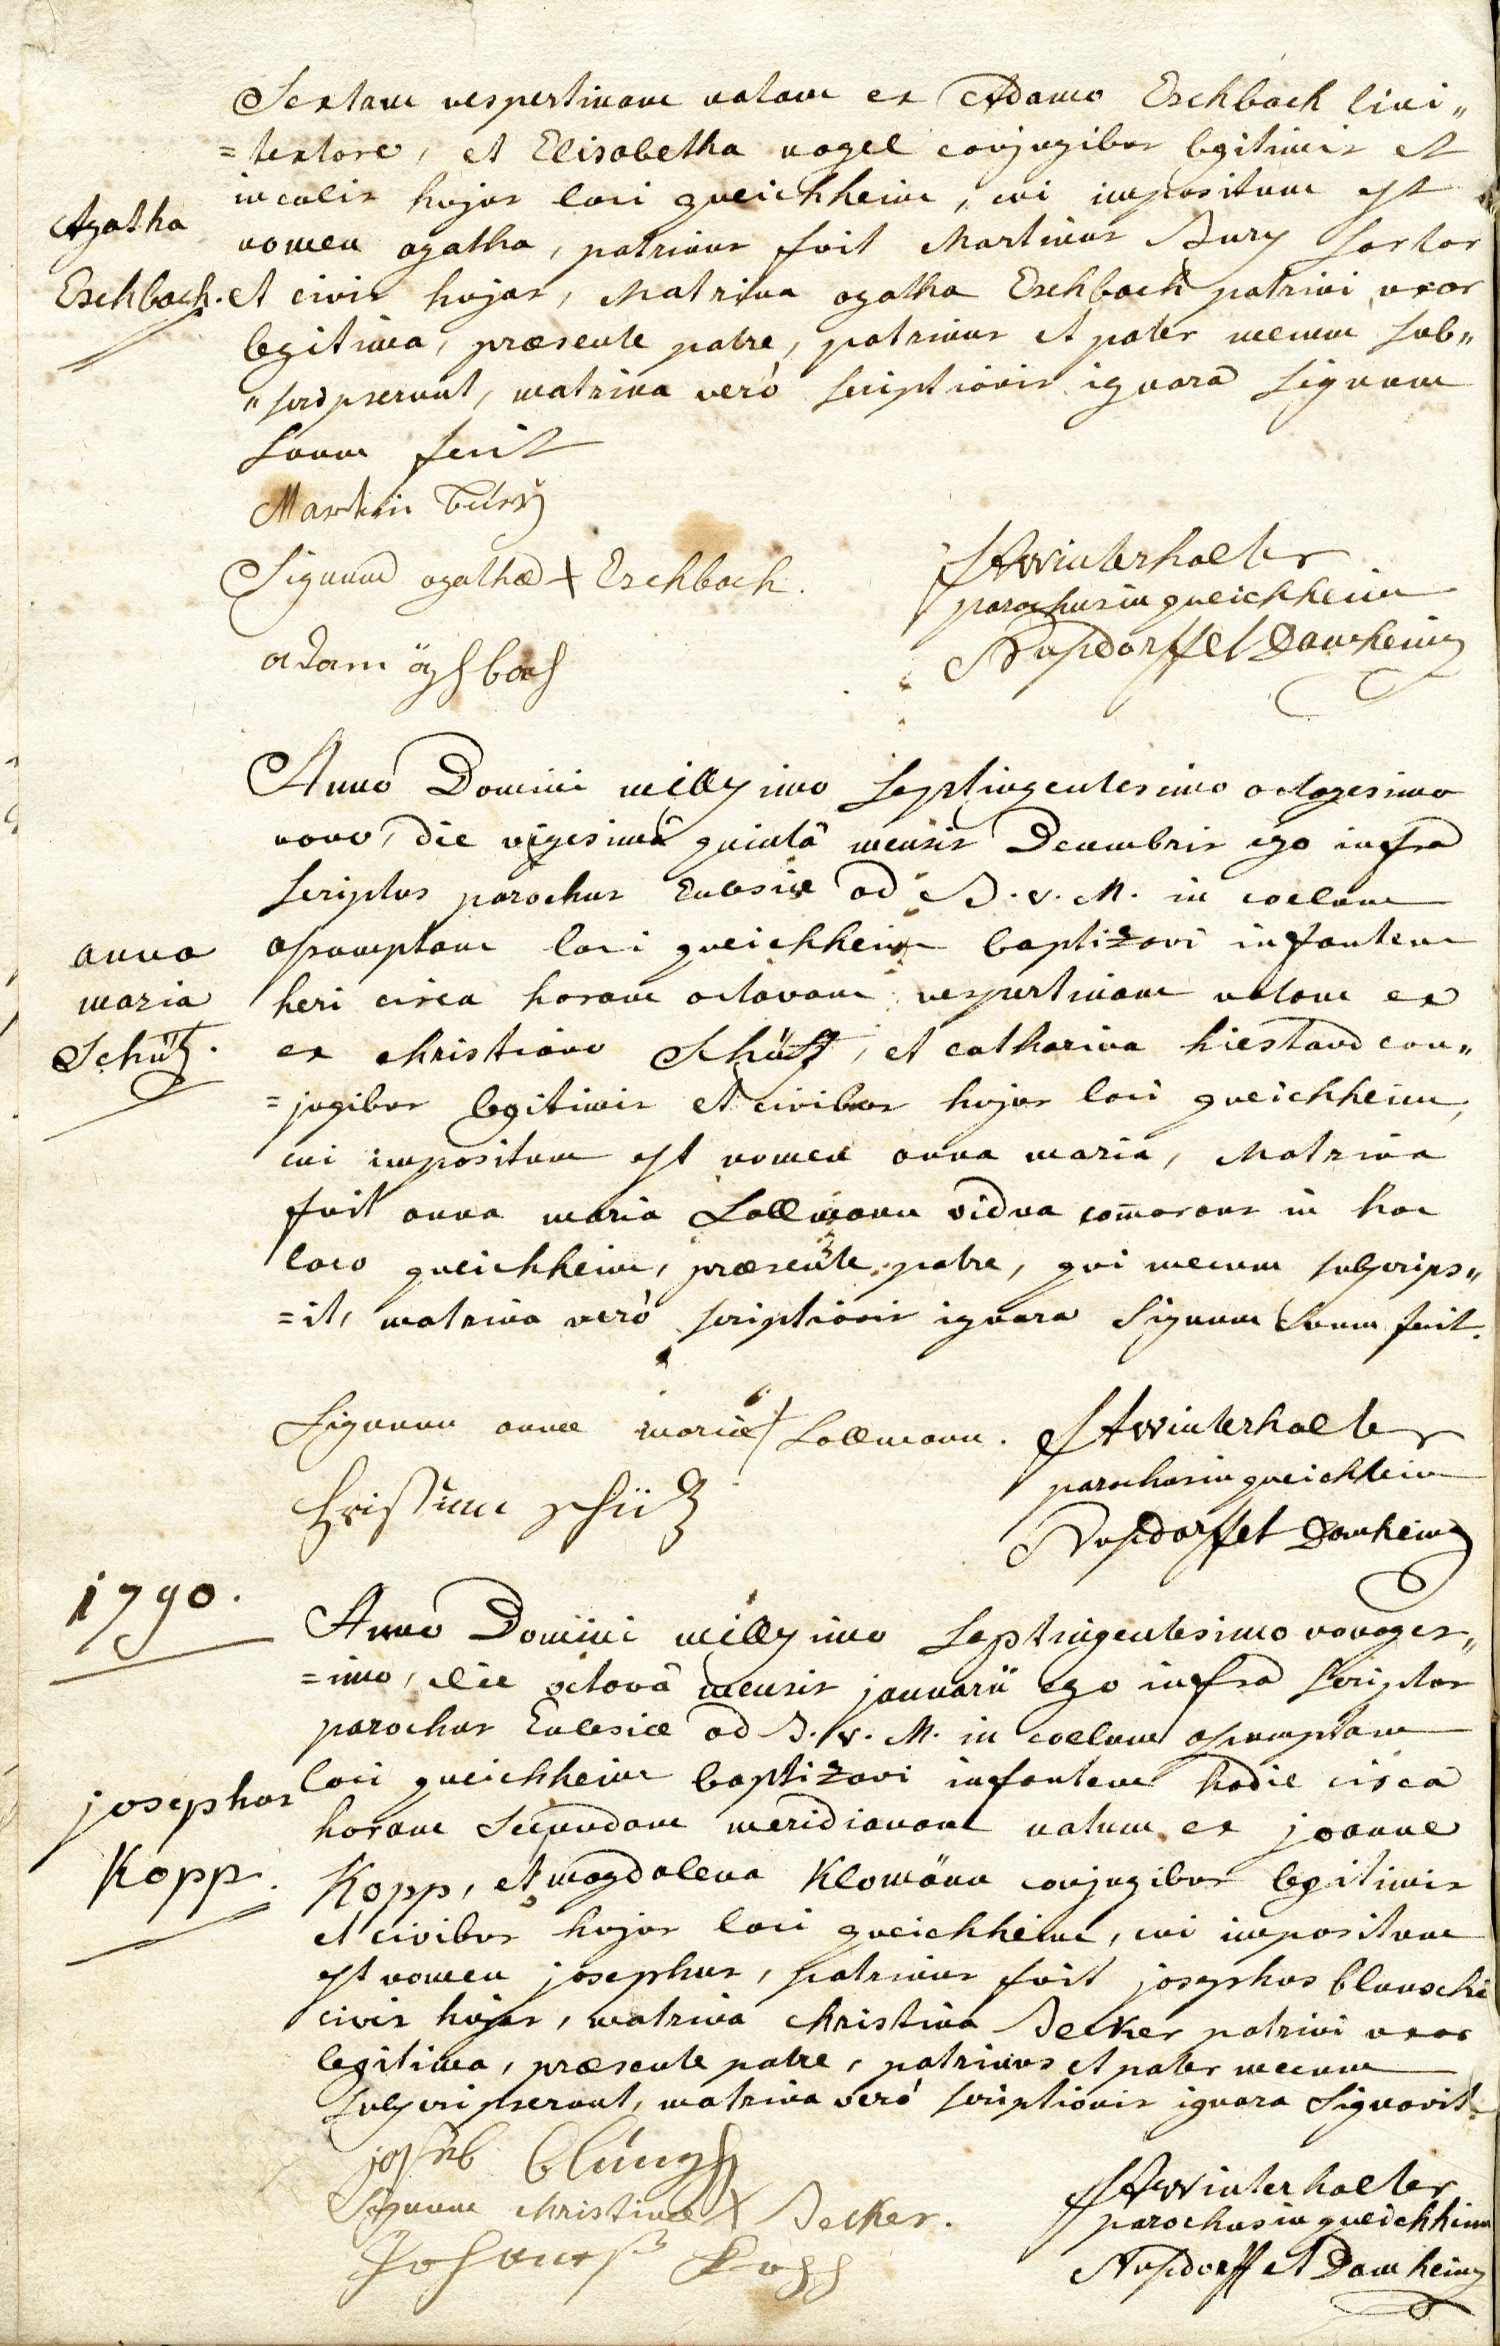 Sextam vespertinam natam ex Adamo Eschbach lini„
=textore, et Elisabetha vogel conjugibus legitimis et
incolis hujus loci queichheim, cui impositum est
Agatha
nomen agatha, patrinus fuit Martinus Bury sartor
Eschbach.
et civis hujas, Matrina agatha Eschbach patrini uxor
legitima, præsente patre, patrinus et pater mecum sub„
„scripserunt, matrina verò scriptionis ignara signum
suum fecit
Martin bürÿ
Signum agathæ + Eschbach.
adam äschbach
FA Winterhalter
parochus in queichheim
Nusdorff et Damheim
Anno Domini millesimo septingentesimo octogesimo
nono, die vigesimâ quintâ mensis Decembris ego infra
scriptus parochus Ecclesiæ ad B. v. M. in coelum
anna
assumptam loci queichheim baptizavi infantem
maria
heri circa horam octavam vespertinam natam ex
Schütz.
ex christiano Schütz, et catharina hiestand con„
=jugibus legitimis et civibus hujus loci queichheim,
cui impositum est nomen anna maria, Matrina
fuit anna maria Lallmann vidua com̄orans in hoc
loco queichheim, præsente patre, qui mecum subscrips„
=it, matrina verò scriptionis ignara signum suum fecit.
Signum annæ mariæ + Lallmann.
christian schütz
FA Winterhalter
parochus in queichheim
Nusdorff et Damheim
1790.
Anno Domini millesimo septingentesimo nonages„
=imo, die octavâ mensis januarii ego infra scriptus
parochus Ecclesiæ ad B. v. M. in coelum assumptam
josephus
loci queichheim baptizavi infantem hodie circa
horam secundam meridianam natum ex joanne
Kopp.
Kopp, et magdalena Klomann conjugibus legitimis
et civibus hujus loci queichheim, cui impositum
est nomen josephus, patrinus fuit josephus
civis hujas, matrina christina Becker patrini uxor
legitima, præsente patre, patrinus et pater mecum
subscripserunt, matrina verò scriptionis ignara signavit.
joseb
Signum christinæ + Becker.
Johannes Kopp
FA Winterhalter
parochus in queichheim
Nusdorff et Damheim